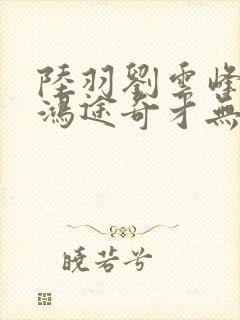 陸羽劉雲峰
鴻途奇才無
曉芸兮